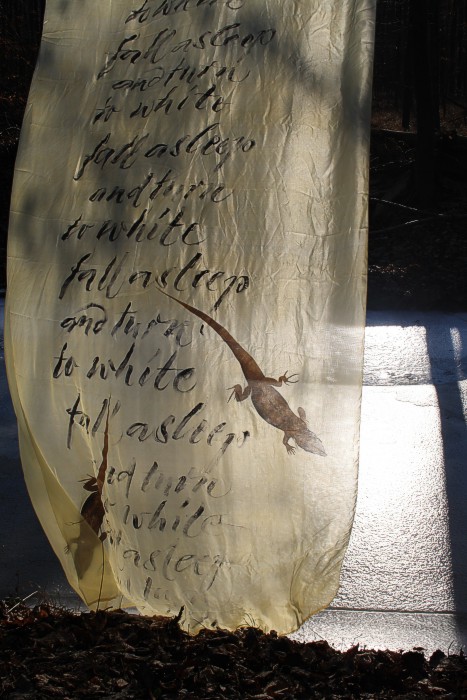 to white
fall asleep
and turn
to white
fall asleep
and turn
to white
fall asleep
and turn
to white
fall asleep
nd turn
white
asleep